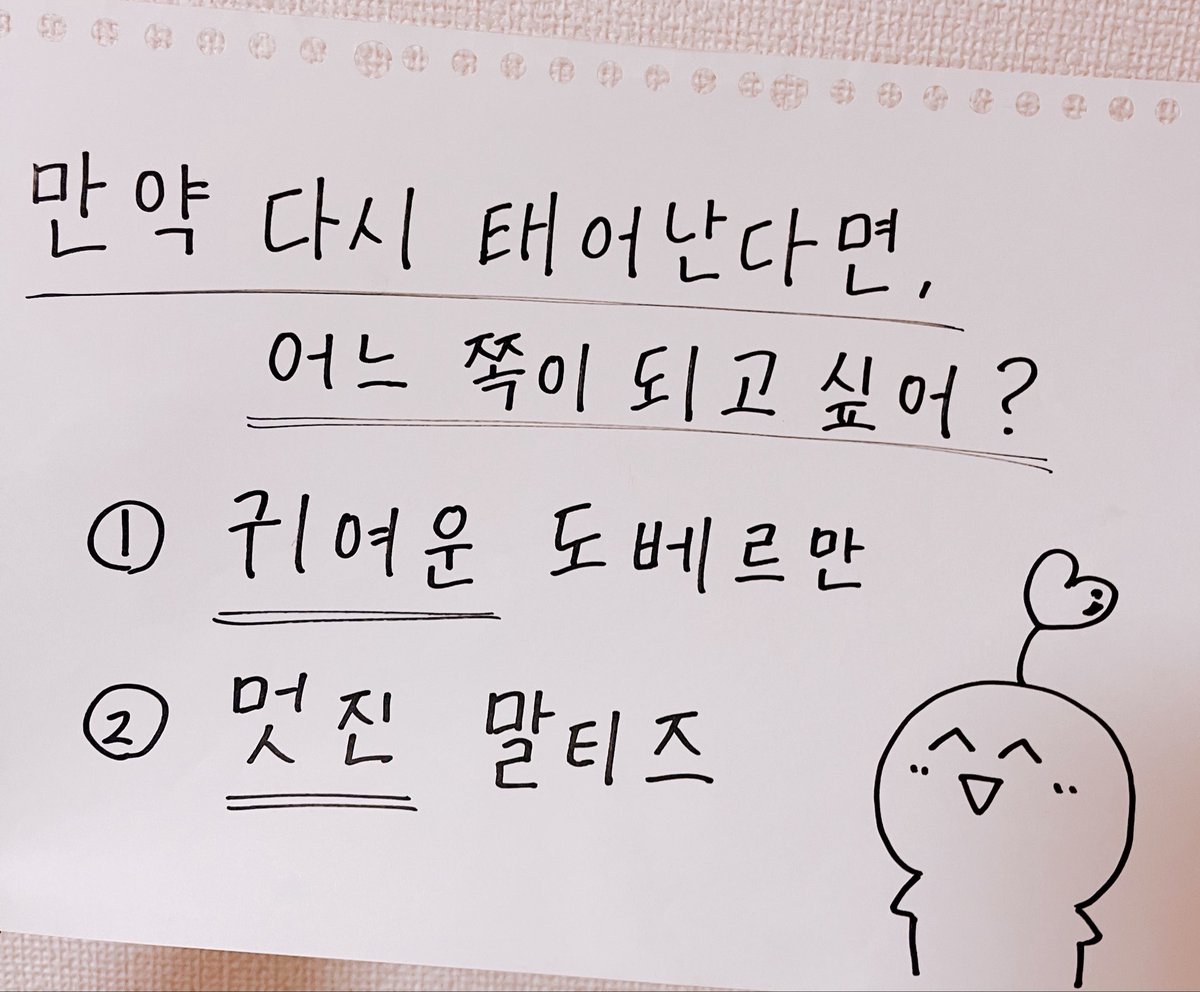 만약 다시 태어난다면,
어느 쪽이 되고 싶어?
① 귀여운 도베르만
② 멋진 말티즈